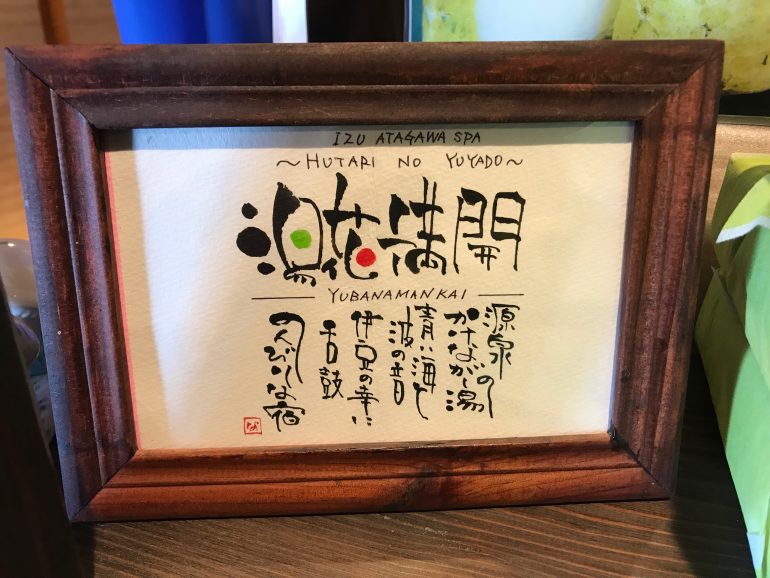 IZU ATAGAWA SPA
~HUTARI NO YUYADO~
湯花満開
YUBANAMANKAI
源泉の
かけながし湯
青い海と
波の音
伊豆の幸に
舌鼓
のんびりな宿
な